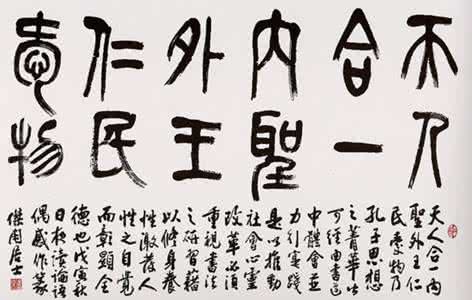 天人
合一
內聖
外王
仁民
愛物
天人合一內
聖外王仁
民愛物乃
孔子思想
之菁華也
可經由書道
中體會並
力行實踐
是以推動
社會心靈
改革必須
重視書法
之研習藉
以修身養
性激發人
性之自覺
而彰顯全
德也戊寅秋
日於讀論語
偶感作篆
居士